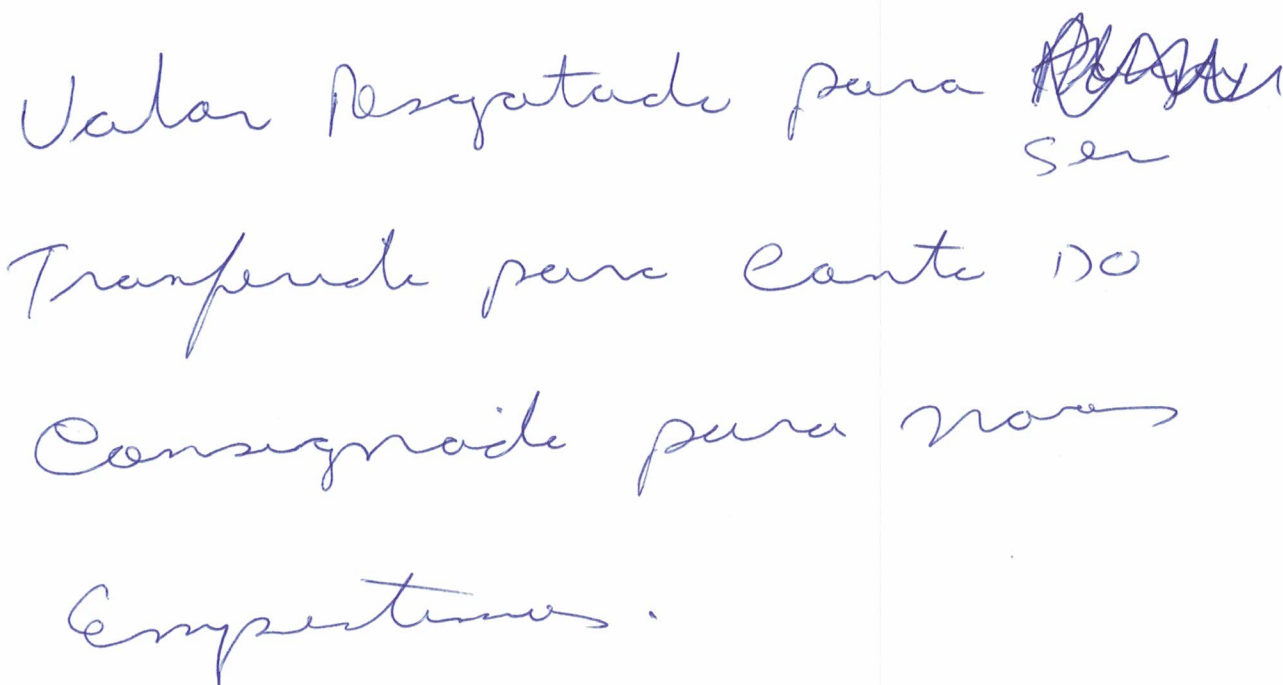 Valor Resgatado para
ser
Tranferido para Conta DO
Consignado para novos
Empestimos.